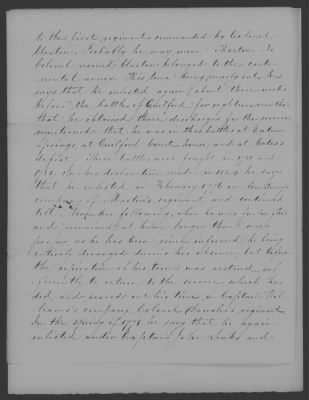 to the first regiment commanded by Colonel
Claxton. Probably he was mean Thaxton. No
Colonel named Claxton belonged to the conti-
nental army. His time being nearly out he
says that he enlisted again (about three weeks
before the battle of Guilford) for eighteen months;
that he obtained three discharges for the services
mentioned; that he was in the battles at Eutaw
Springs, at Guilford Court house, and at Gates's
defeat. These battles were fought in 1780 and
1781. In his declaration made in 1824 he says
that he enlisted in February 1776 in Armstrong's
company of Martin's regiment and continued
till November following, when he was furloughed
and remained at home longer than was
proper as he has been since informed, he being
entirely deranged during his absence, but before
the expiration of his term was restored suf-
ficiently to return to the service which he
did, and served out his time in Captain
company, Colonel regiment
In the spring of 1778 he says that he again
enlisted under Captain John and